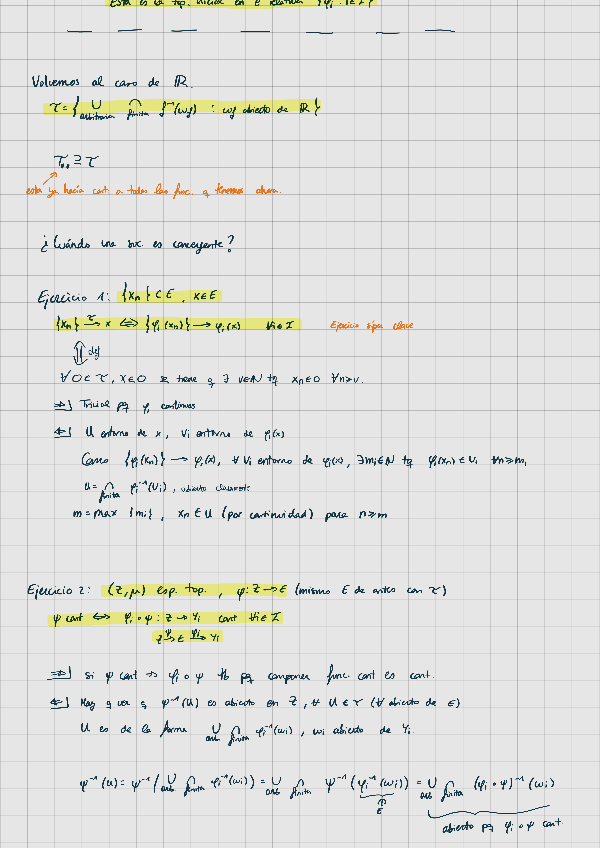 Esta es la top. inicial en E relativa {φi : i∈I}
Volvemos al caso de ℝ.
τ = { ∪ arbitraria ∩ finita f⁻¹(ωf) : ωf abierto de ℝ }
⊇ τ
esta ya hacía cont. a todas las func. q tenemos ahora.
¿Cuándo una suc. es convergente?
Ejercicio 1: {xn} ⊂ E, x∈E
{xn} →τ x ⟺ {φi(xn)} → φi(x) ∀i∈I Ejercicio súper clave
⇕ def
∀O∈τ, x∈O se tiene q ∃ ν∈ℕ tq xn∈O ∀n≥ν.
⇒] Trivial pq φi continuas
⇐] U entorno de x, Vi entorno de φi(x)
Como {φi(xn)} → φi(x), ∀Vi entorno de φi(x), ∃mi∈ℕ tq φi(xn)∈Vi ∀n≥mi
U = ∩ finita φi⁻¹(Vi), abierto claramente
m = max {mi}, xn∈U (por continuidad) para n≥m
Ejercicio 2: (Z,μ) esp. top., ψ: Z→E (mismo E de antes con τ)
ψ cont ⟺ φi∘ψ : Z → Yi cont ∀i∈I
Z →ψ E →φi Yi
⇒] Si ψ cont → φi∘ψ tb pq componer func. cont es cont.
⇐] Hay q ver q ψ⁻¹(U) es abierto en Z, ∀ U∈τ (∀ abierto de E)
U es de la forma ∪ arb ∩ finita φi⁻¹(ωi), ωi abierto de Yi.
ψ⁻¹(U) = ψ⁻¹(∪ arb ∩ finita φi⁻¹(ωi)) = ∪ arb ∩ finita ψ⁻¹(φi⁻¹(ωi)) = ∪ arb ∩ finita (φi∘ψ)⁻¹(ωi)
E
abierto pq φi∘ψ cont.